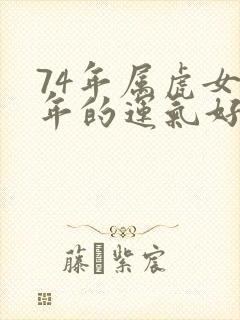 74年属虎女
年的运气好
藤紫宸